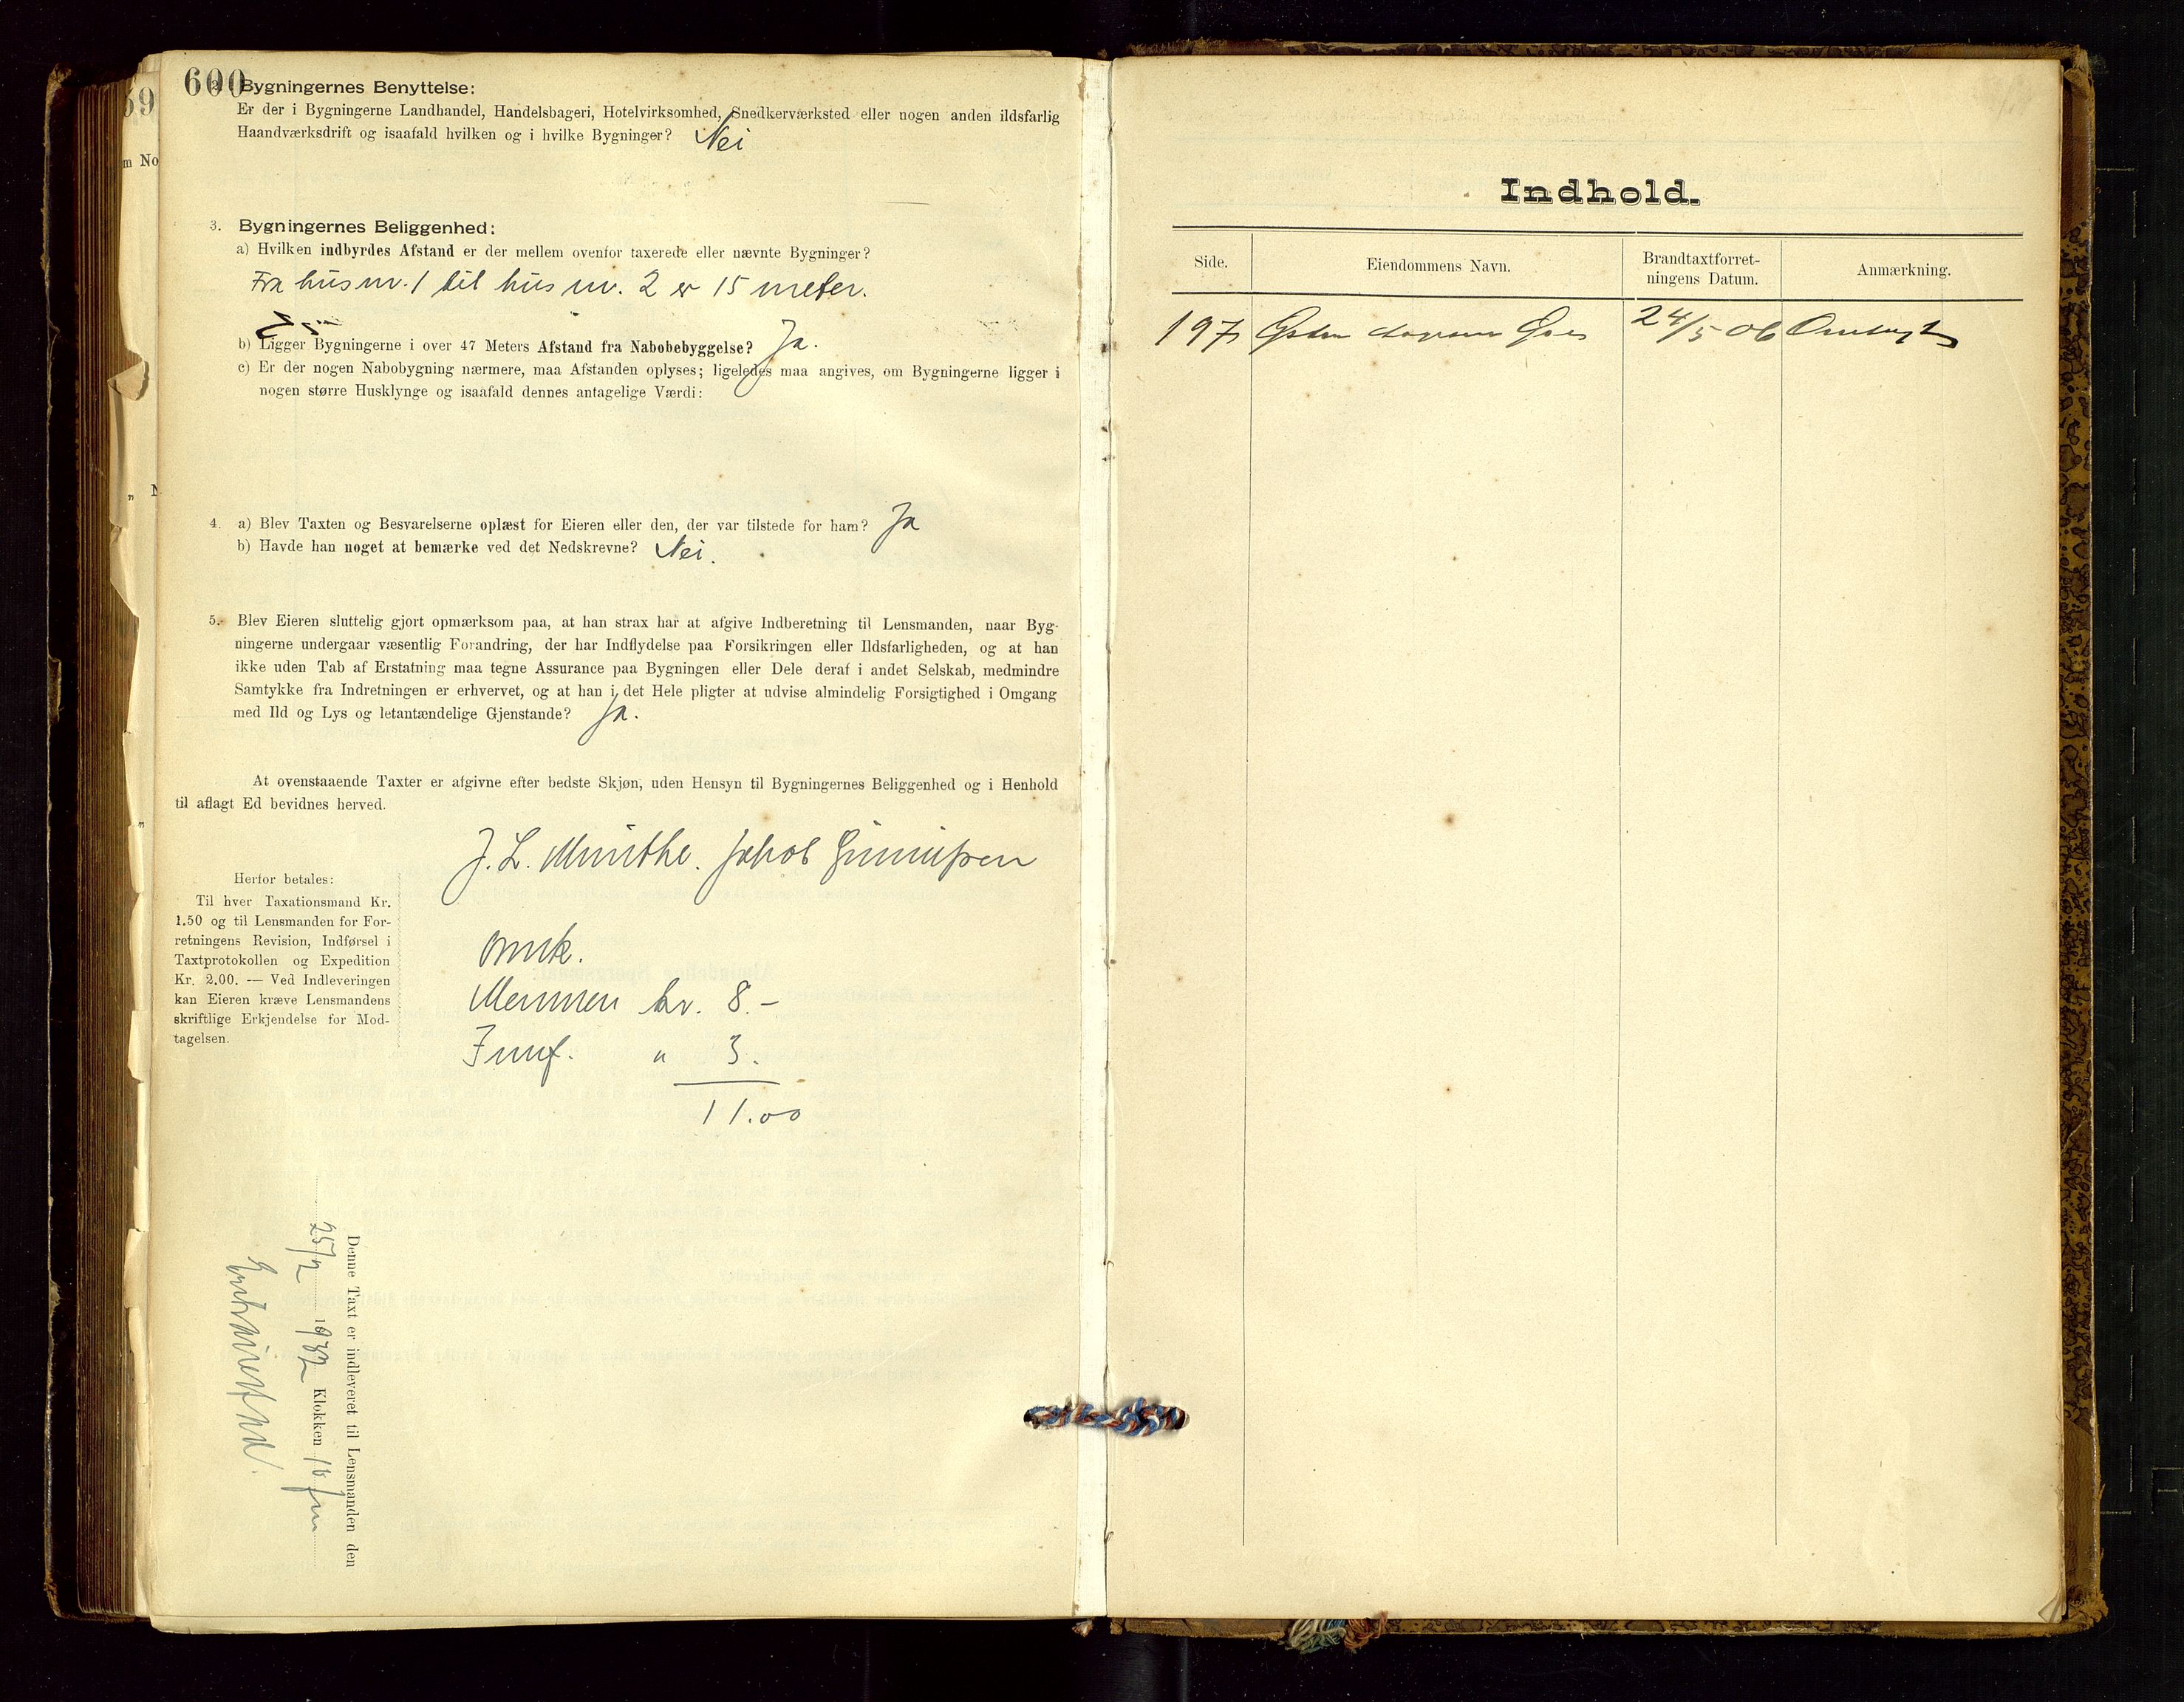 600
Bygningernes Benyttelse:
Er der i Bygningerne Landhandel, Handelsbageri, Hotelvirksomhed, Snedkerværksted eller nogen anden ildsfarlig
Haandværksdrift og isaafald hvilken og i hvilke Bygninger? Nei
3. Bygningernes Beliggenhed:
a) Hvilken indbyrdes Afstand er der mellem ovenfor taxerede eller nævnte Bygninger?
Fra hus nr. 1 til hus nr. 2 er 15 meter.
b) Ligger Bygningerne i over 47 Meters Afstand fra Nabobebyggelse? Ja.
c) Er der nogen Nabobygning nærmere, maa Afstanden oplyses; ligeledes maa angives, om Bygningerne ligger i
nogen større Husklynge og isaafald dennes antagelige Værdi:
4. a) Blev Taxten og Besvarelserne oplæst for Eieren eller den, der var tilstede for ham? Ja
b) Havde han noget at bemærke ved det Nedskrevne? Nei.
5. Blev Eieren sluttelig gjort opmærksom paa, at han strax har at afgive Indberetning til Lensmanden, naar Byg-
ningerne undergaar væsentlig Forandring, der har Indflydelse paa Forsikringen eller Ildsfarligheden, og at han
ikke uden Tab af Erstatning maa tegne Assurance paa Bygningen eller Dele deraf i andet Selskab, medmindre
Samtykke fra Indretningen er erhvervet, og at han i det Hele pligter at udvise almindelig Forsigtighed i Omgang
med Ild og Lys og letantændelige Gjenstande? Ja.
At ovenstaaende Taxter er afgivne efter bedste Skjøn, uden Hensyn til Bygningernes Beliggenhed og i Henhold
til aflagt Ed bevidnes herved.
J. L. Munthe. Jakob
Herfor betales:
Til hver Taxationsmand Kr.
1.50 og til Lensmanden for For-
retningens Revision, Indførsel i
Taxtprotokollen og Expedition
Kr. 2.00. — Ved Indleveringen
kan Eieren kræve Lensmandens
skriftlige Erkjendelse for Mod-
tagelsen.
kr. 8.-
" 3.
11.00
Denne Taxt er indleveret til Lensmanden den
25/2 1932 Klokken
Indhold.
Side.
Eiendommens Navn.
Brandtaxtforret-
ningens Datum.
Anmærkning.
197
24/5 06
59
m No